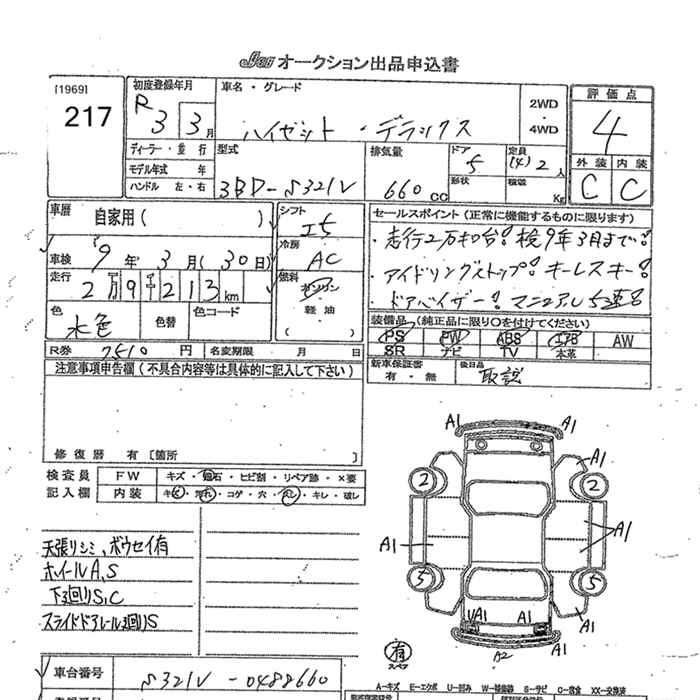 オークション出品申込書
[1969]
217
初度登録年月
R 3 3月
車名・グレード
ハイゼット・デラックス
2WD
・
4WD
評価点
4
ディーラー・並行
モデル年式 年
ハンドル 左・右
型式
3BD-S321V
排気量
660 CC
ドア
5
形状
定員
(4) 2人
積載
Kg
外装 内装
C C
車歴
自家用( )
車検 9年 3月 (30日)
走行
2万9千213 km
色
水色
色替
色コード
シフト
I5
冷房
AC
燃料
ガソリン
・
軽油
( )
セールスポイント(正常に機能するものに限ります)
・走行2万キロ台!検9年3月まで!
・アイドリングストップ!キーレスキー!
・ドアバイザー!マニュアル5速名
装備品(純正品に限り○を付けてください)
PS PW ABS エアB AW
SR ナビ TV 本革
R券 7510 円 名変期限 月 日
新車保証書
有・無
後日品
取説
注意事項申告欄(不具合内容等は具体的に記入して下さい)
修復歴 有〔箇所 〕
検査員
記入欄
FW キズ・飛石・ヒビ割・リペア跡・×要
内装 キズ・汚れ・コゲ・穴・スレ・キレ・破レ
天張りシミ、ボウセイ有
ホイールA,S
下廻りS,C
スライドドアレール廻りS
A1
A1
A1
A1
2
2
A1
A1
5
5
UA1
A1
A1
A1
A2
有
スペア
車台番号 S321V-0488660
A-キズ E-エクボ U-凹み W-補修跡 S-サビ C-腐食 XX-交換済